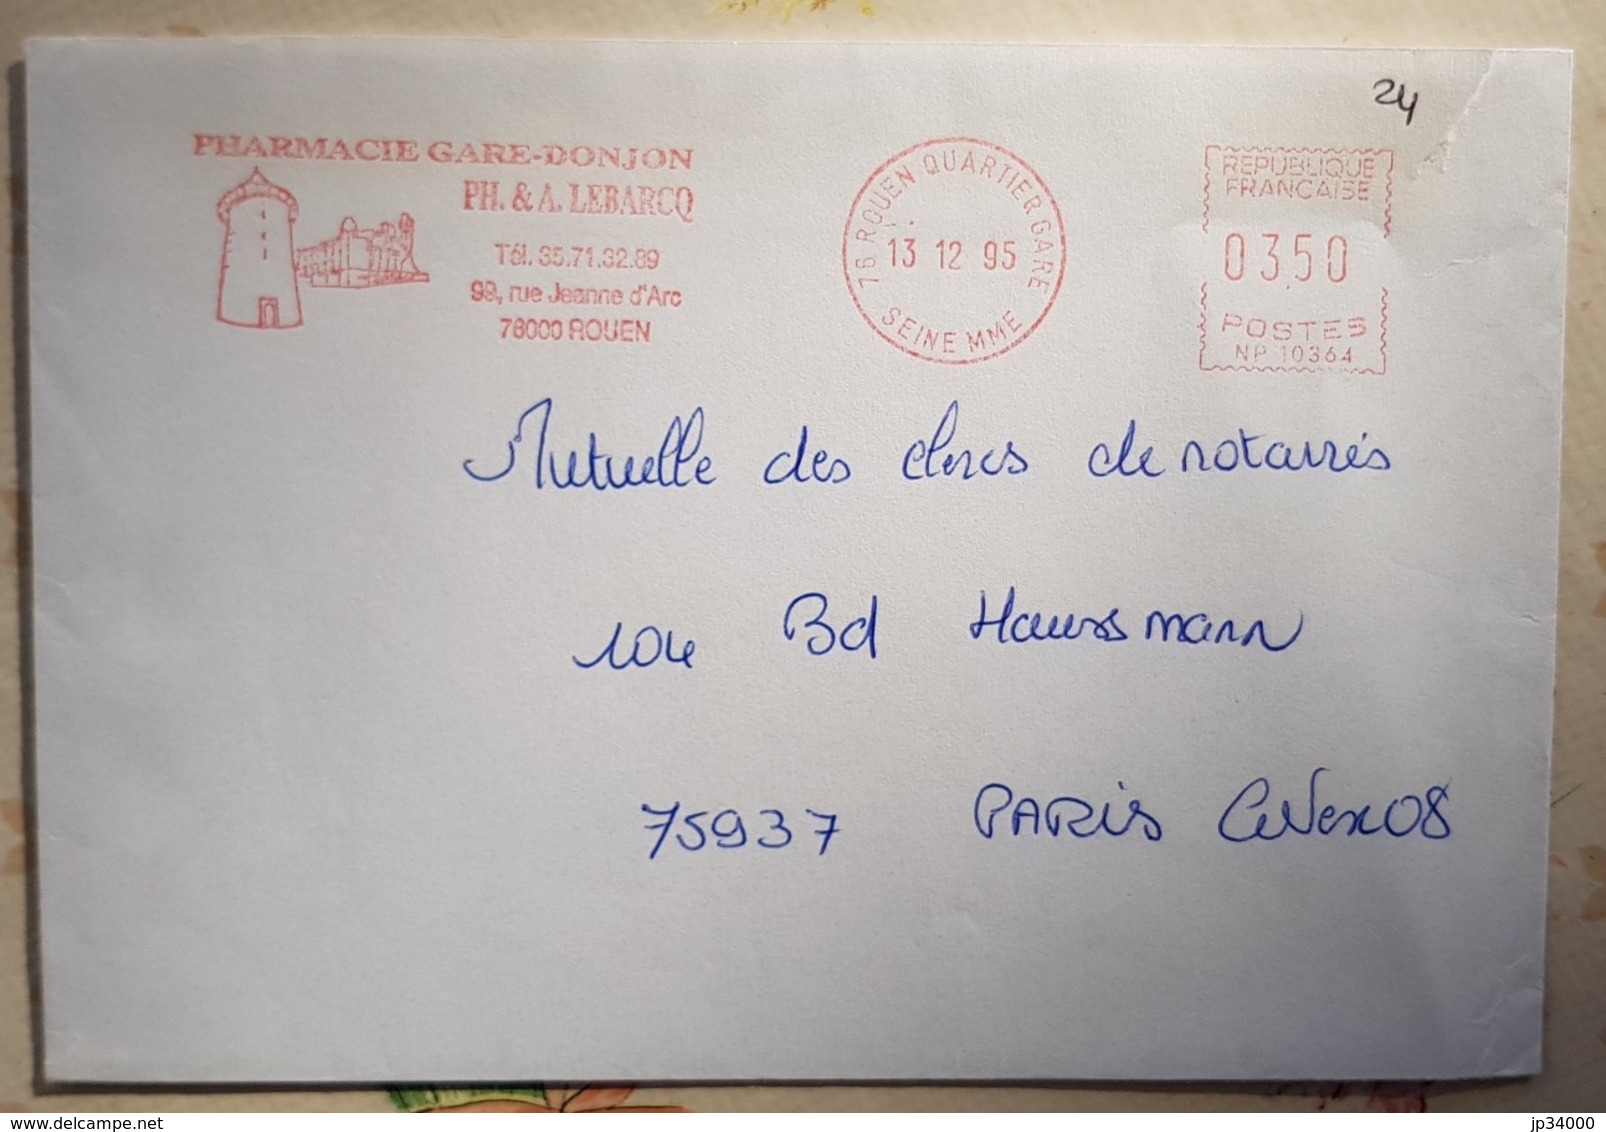 24
PHARMACIE GARE-DONJON
PH. & A. LEBARCQ
Tél. 35.71.32.89
99, rue Jeanne d'Arc
76000 ROUEN
76 ROUEN QUARTIER GARE
13 12 95
SEINE MME
REPUBLIQUE
FRANCAISE
0350
POSTES
NP 10364
Mutuelle des clercs de notaires
104 Bd Haussmann
75937 PARIS Cedex 08
delcampe.net
jp34000